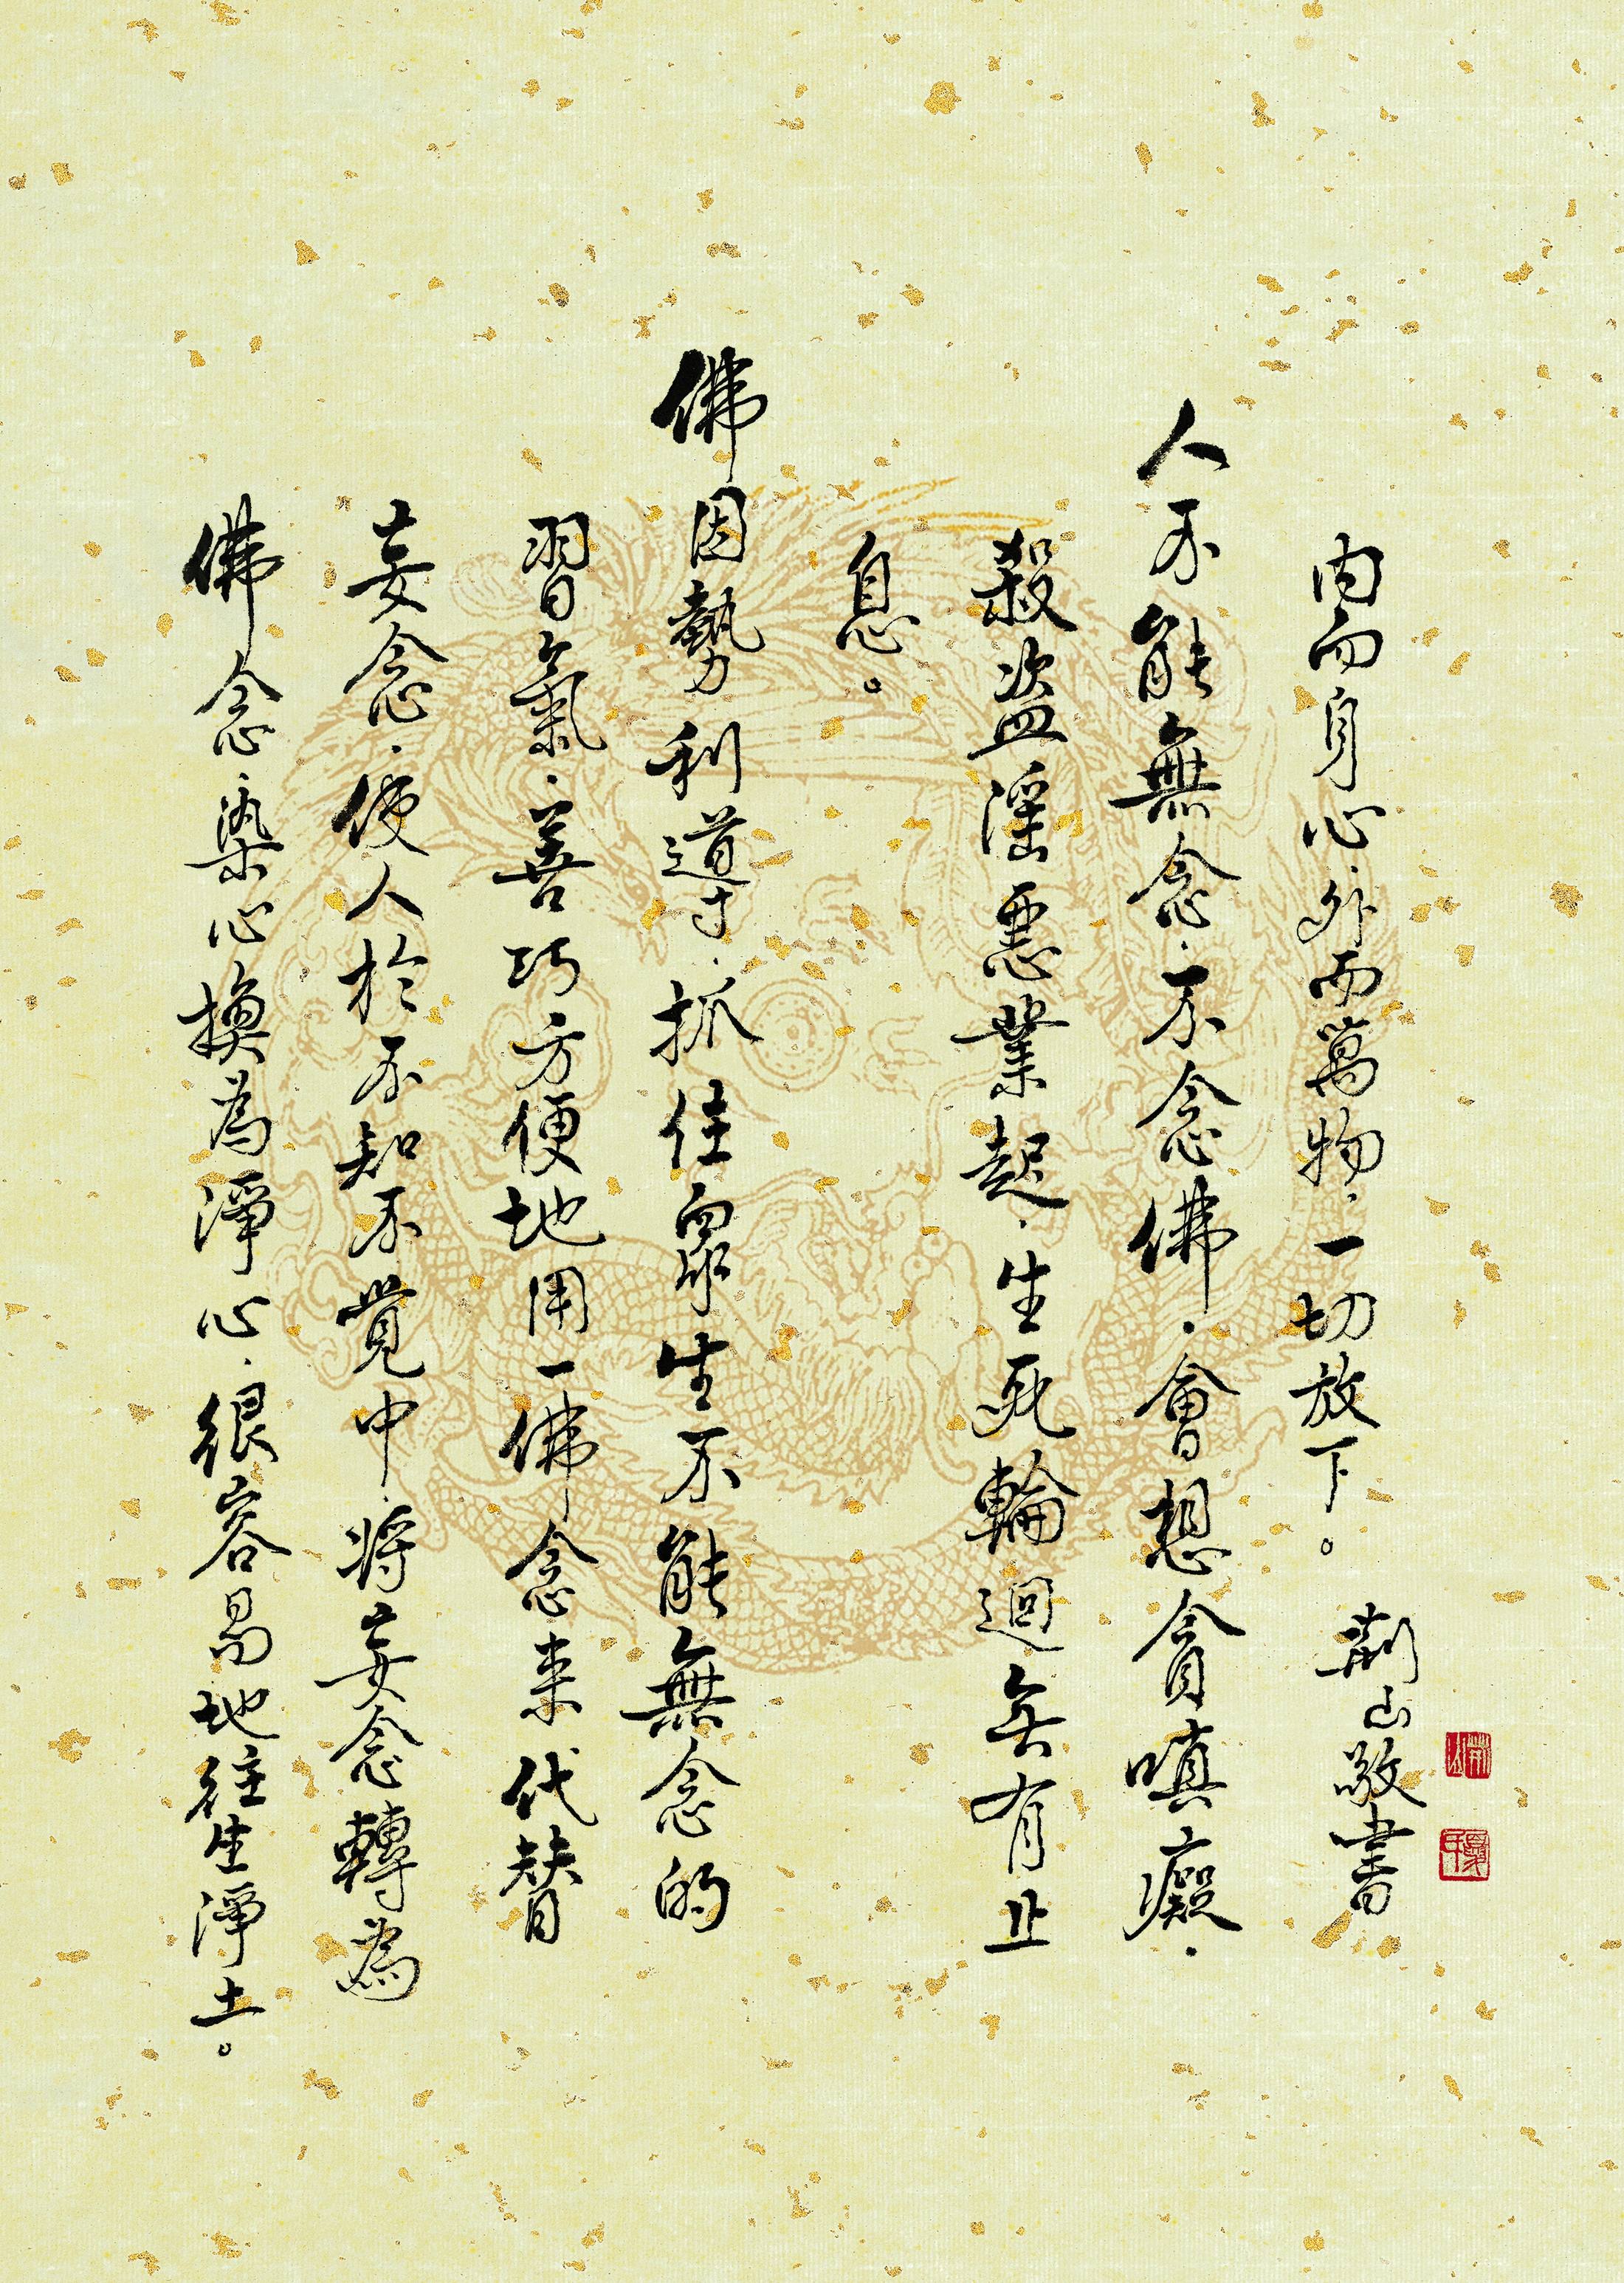 內而身心.外而萬物.一切放下。 荊山敬書
人不能無念.不念佛.會想貪嗔癡.
殺盜淫惡業起.生死輪迴無有止
息。
佛因勢利導.抓住眾生不能無念的
習氣.善巧方便地用一佛念來代替
妄念.使人於不知不覺中.將妄念轉為
佛念.染心換為淨心.很容易地往生淨土。
荊山